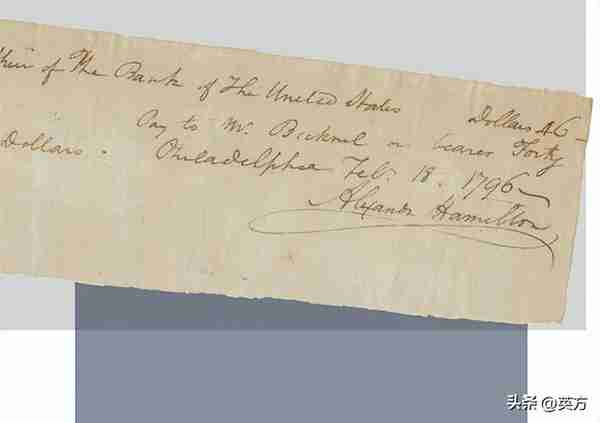 of The Bank of The United States Dollars 46
Pay to Mr. Bicknel or bearer Forty
Dollars. Philadelphia Feb. 18. 1796
Alexandr Hamilton
头条 @英方